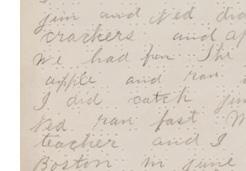 Jim and Ned did
crackers and ap
We had fun The
apple and ran
I did catch Jim
Ned ran fast M
teacher and I
Boston in June